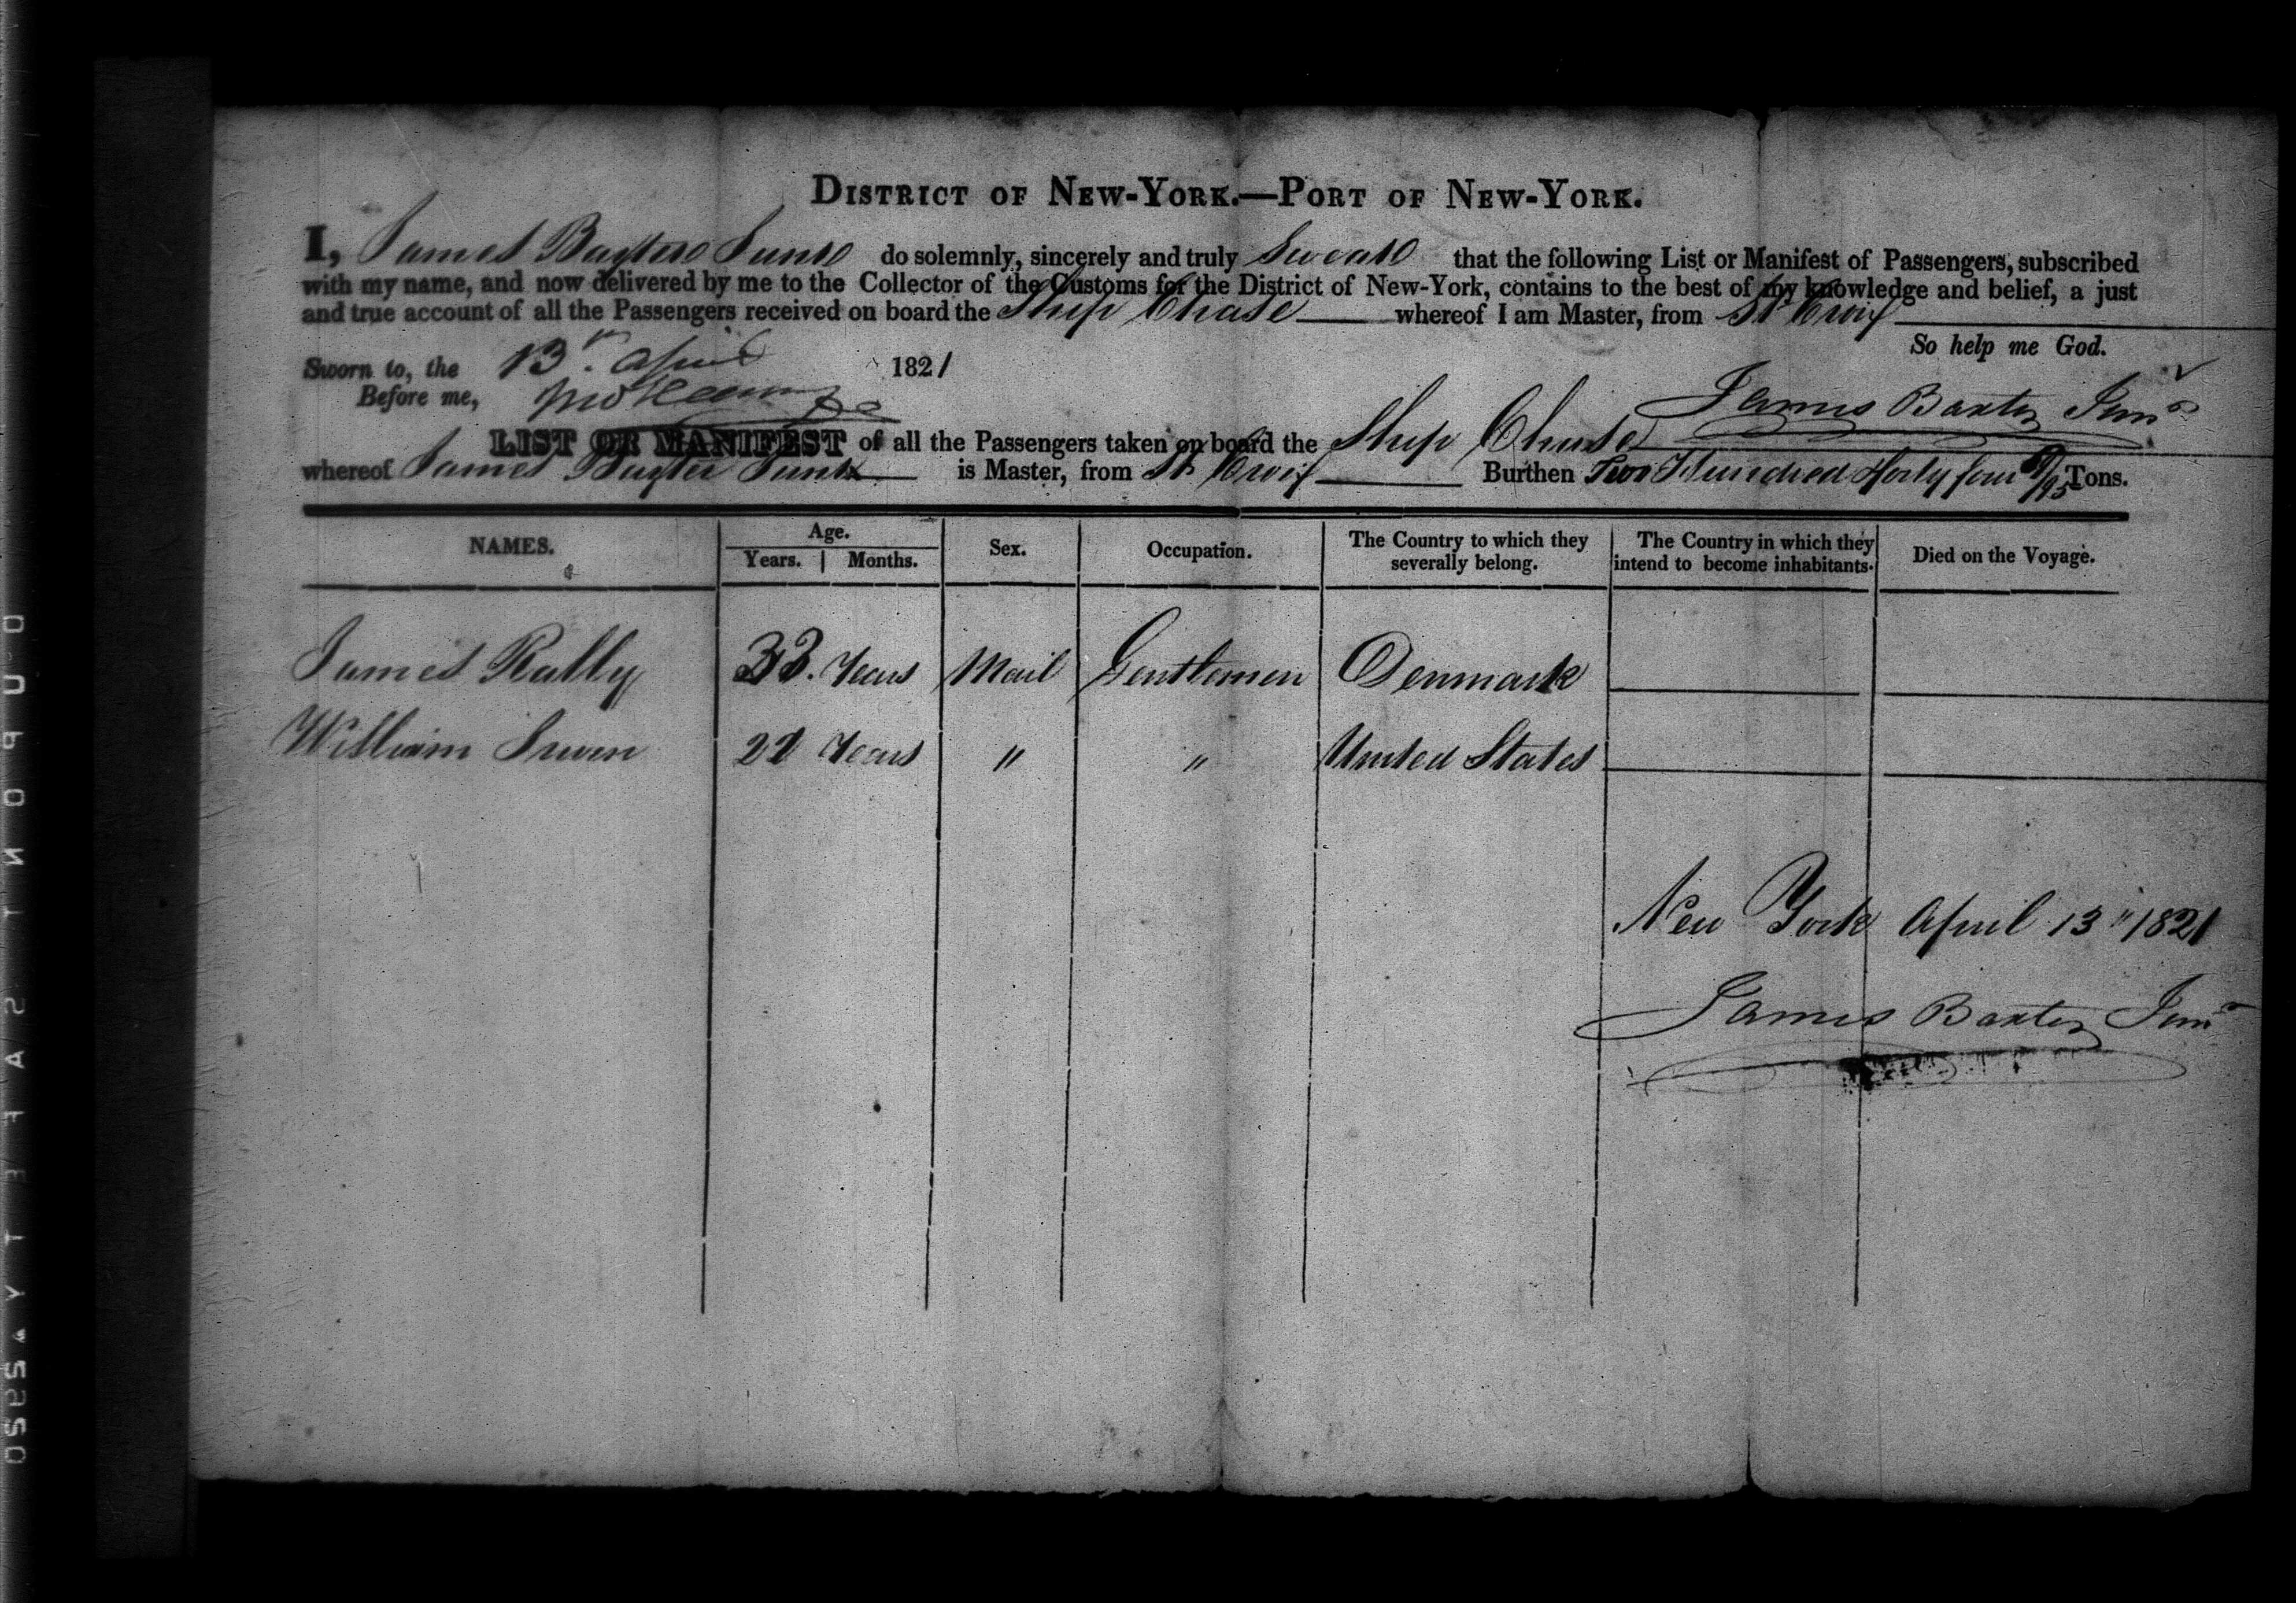 DISTRICT OF NEW-YORK.—PORT OF NEW-YORK.
I, James Baxter Junr do solemnly, sincerely and truly Swear that the following List or Manifest of Passengers, subscribed
with my name, and now delivered by me to the Collector of the Customs for the District of New-York, contains to the best of my knowledge and belief, a just
and true account of all the Passengers received on board the Ship Chase whereof I am Master, from St Croix
So help me God.
Sworn to, the 13th April 1821
Before me,
James Baxter Junr
LIST OR MANIFEST of all the Passengers taken on board the Ship Chase
whereof James Baxter Junr is Master, from St Croix Burthen Two Hundred Forty four /95 Tons.
NAMES. Age. Years. Months. Sex. Occupation. The Country to which they severally belong. The Country in which they intend to become inhabitants. Died on the Voyage.
James Rally 33. Years Mail Gentlemen Denmark
William Irwin 22 Years " " United States
New York April 13" 1821
James Baxter Junr